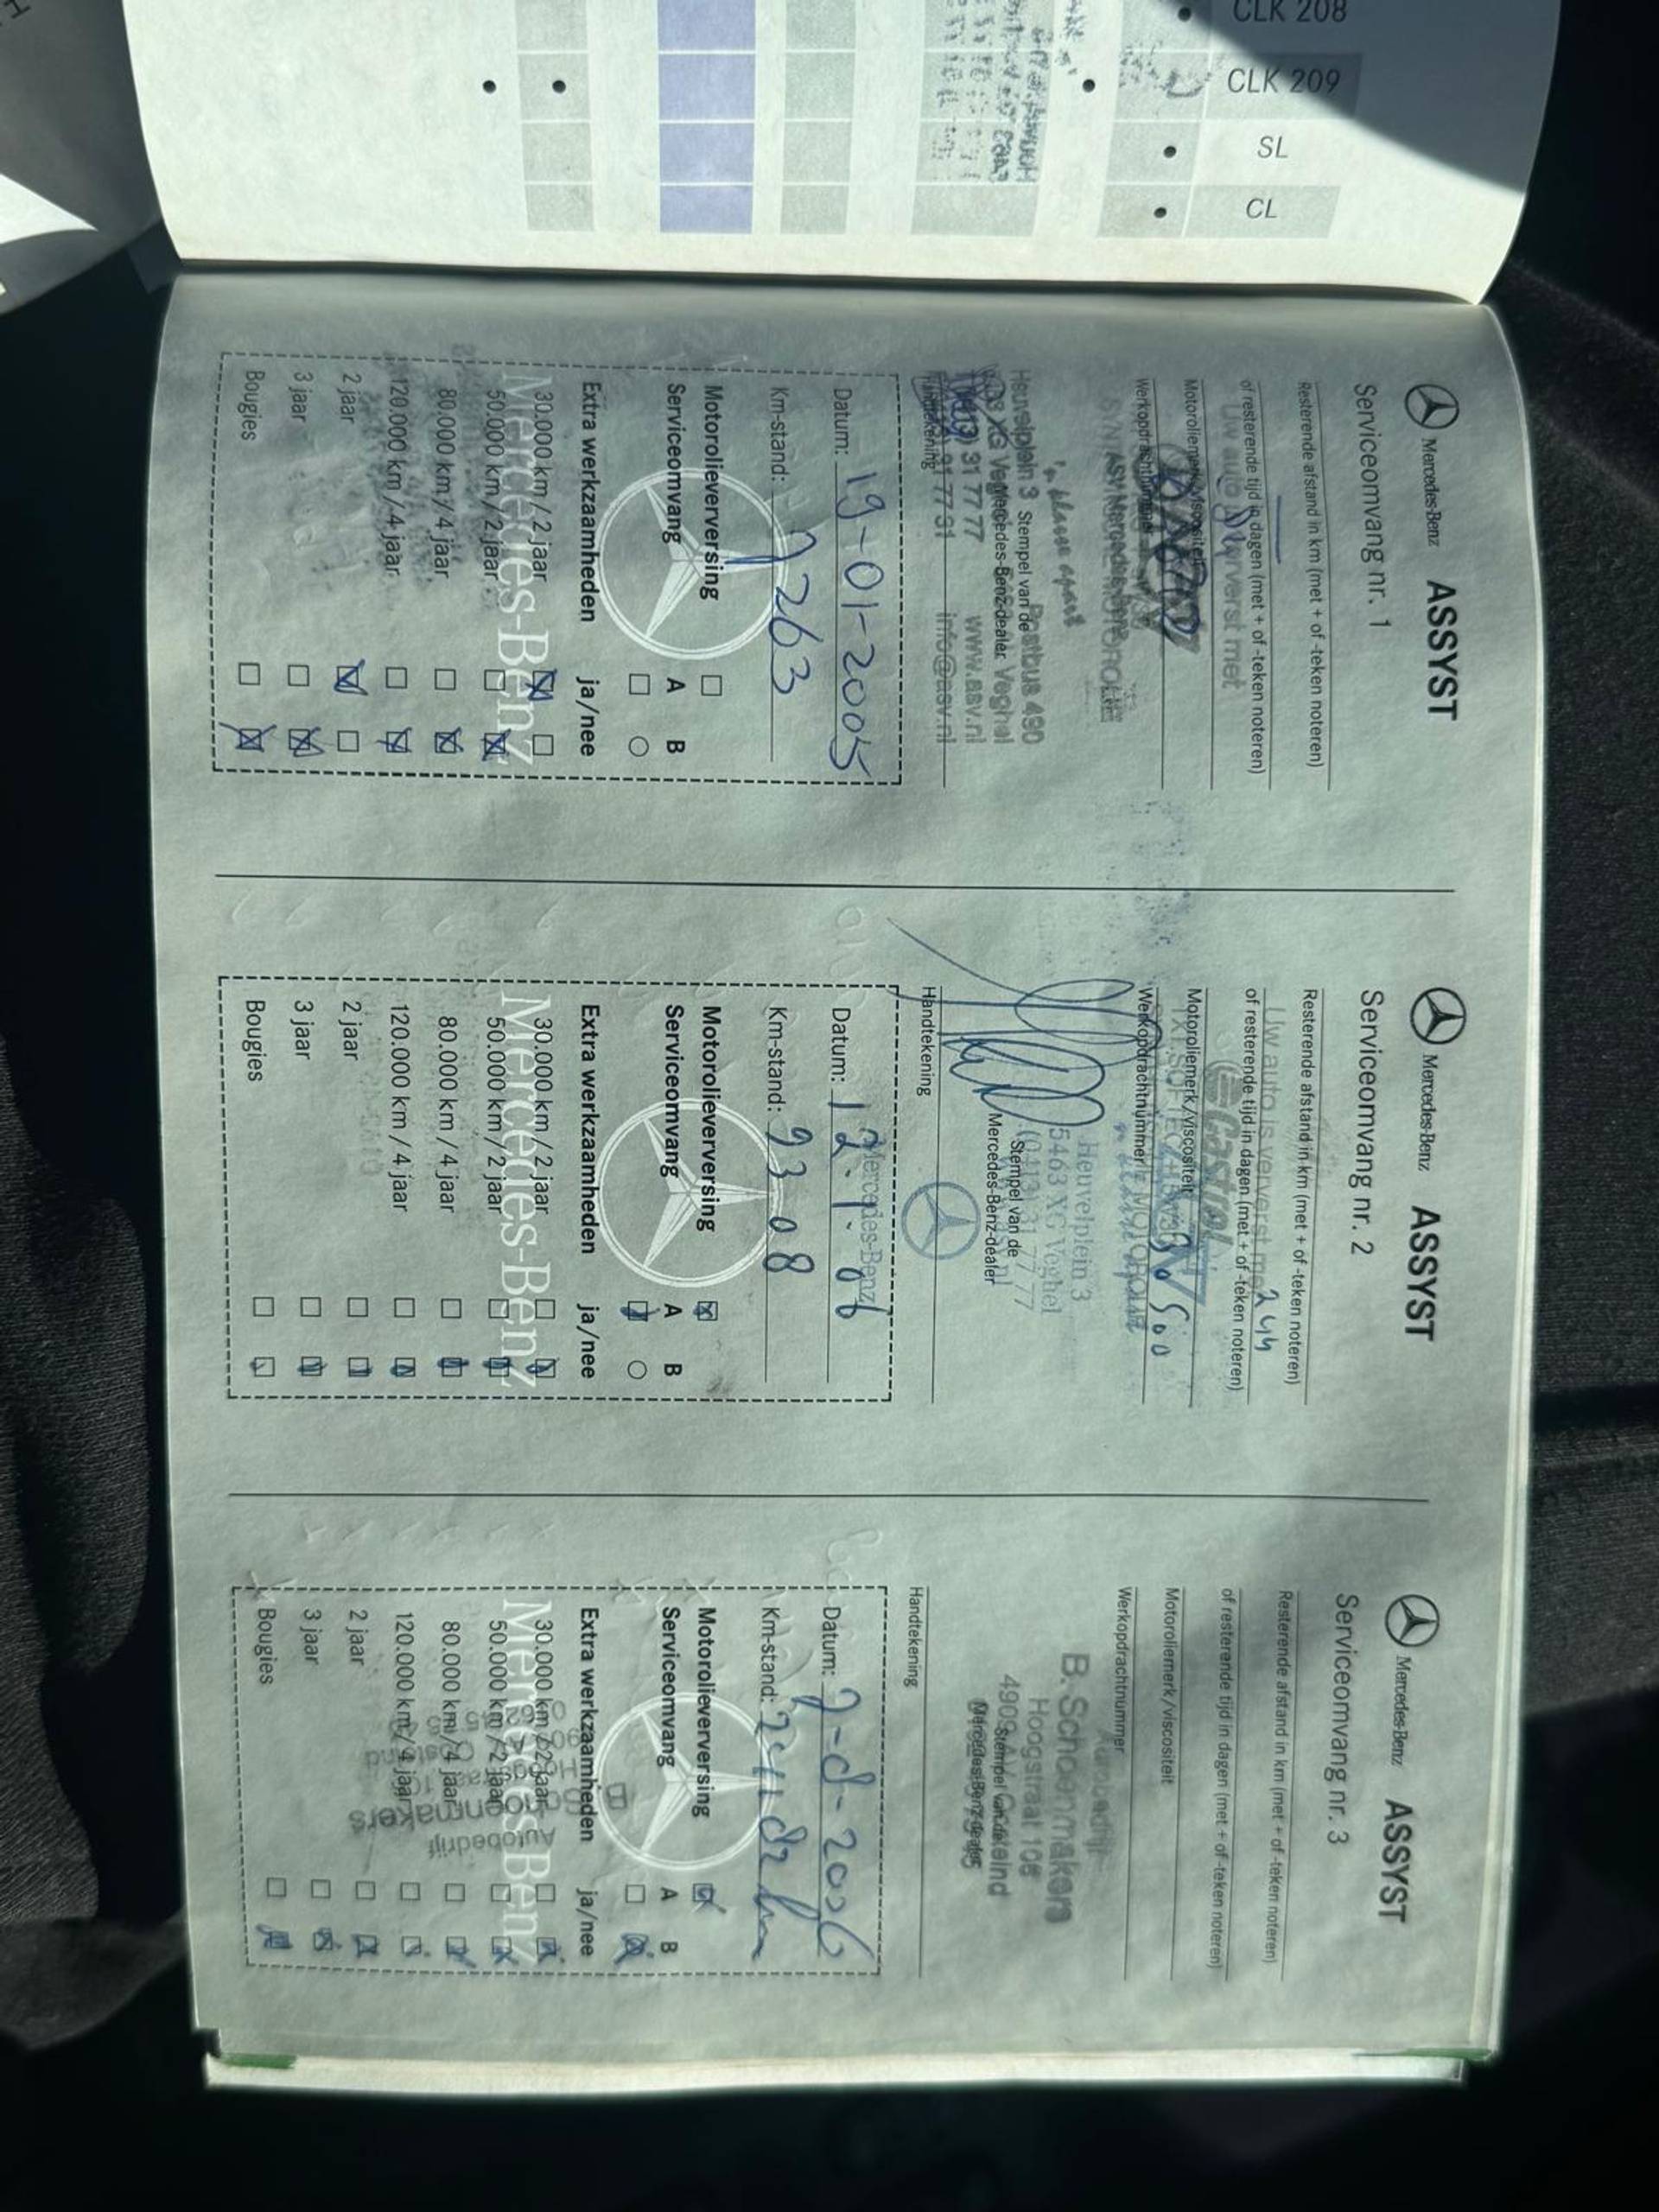 CLK 208
CLK 209
SL
CL
Mercedes-Benz
ASSYST
Serviceomvang nr. 1
Resterende afstand in km (met + of -teken noteren)
of resterende tijd in dagen (met + of -teken noteren)
Uw auto ververst met
Motoroliemerk/viscositeit
Werkopdrachtnummer
Heuvelplein 3 Postbus 490
Stempel van de
Mercedes-Benz-dealer
Veghel
31 77 77 www.asv.nl
31 77 31 info@asv.nl
Handtekening
Datum: 19-01-2005
Km-stand: 7263
Motorolieverversing
Serviceomvang A B
Extra werkzaamheden ja/nee
30.000 km / 2 jaar
Mercedes-Benz
50.000 km / 2 jaar
80.000 km / 4 jaar
120.000 km / 4 jaar
2 jaar
3 jaar
Bougies
Mercedes-Benz
ASSYST
Serviceomvang nr. 2
Resterende afstand in km (met + of -teken noteren)
Uw auto is ververst met 244
of resterende tijd in dagen (met + of -teken noteren)
Castrol
Motoroliemerk/viscositeit
Werkopdrachtnummer
Heuvelplein 3
5463 XG Veghel
(0413) 31 77 77
Stempel van de
Mercedes-Benz-dealer
Handtekening
Mercedes-Benz
Datum: 12.1.06
Km-stand: 9308
Motorolieverversing
Serviceomvang A B
Extra werkzaamheden ja/nee
30.000 km / 2 jaar
Mercedes-Benz
50.000 km / 2 jaar
80.000 km / 4 jaar
120.000 km / 4 jaar
2 jaar
3 jaar
Bougies
Mercedes-Benz
ASSYST
Serviceomvang nr. 3
Resterende afstand in km (met + of -teken noteren)
of resterende tijd in dagen (met + of -teken noteren)
Motoroliemerk/viscositeit
Werkopdrachtnummer
Autobedrijf
B. Schoenmakers
Hoogstraat 106
Stempel van de
Mercedes-Benz-dealer
Handtekening
Datum: 7-8-2006
Km-stand:
Motorolieverversing
Serviceomvang A B
Extra werkzaamheden ja/nee
30.000 km / 2 jaar
Mercedes-Benz
50.000 km / 2 jaar
80.000 km / 4 jaar
120.000 km / 4 jaar
2 jaar
3 jaar
Bougies